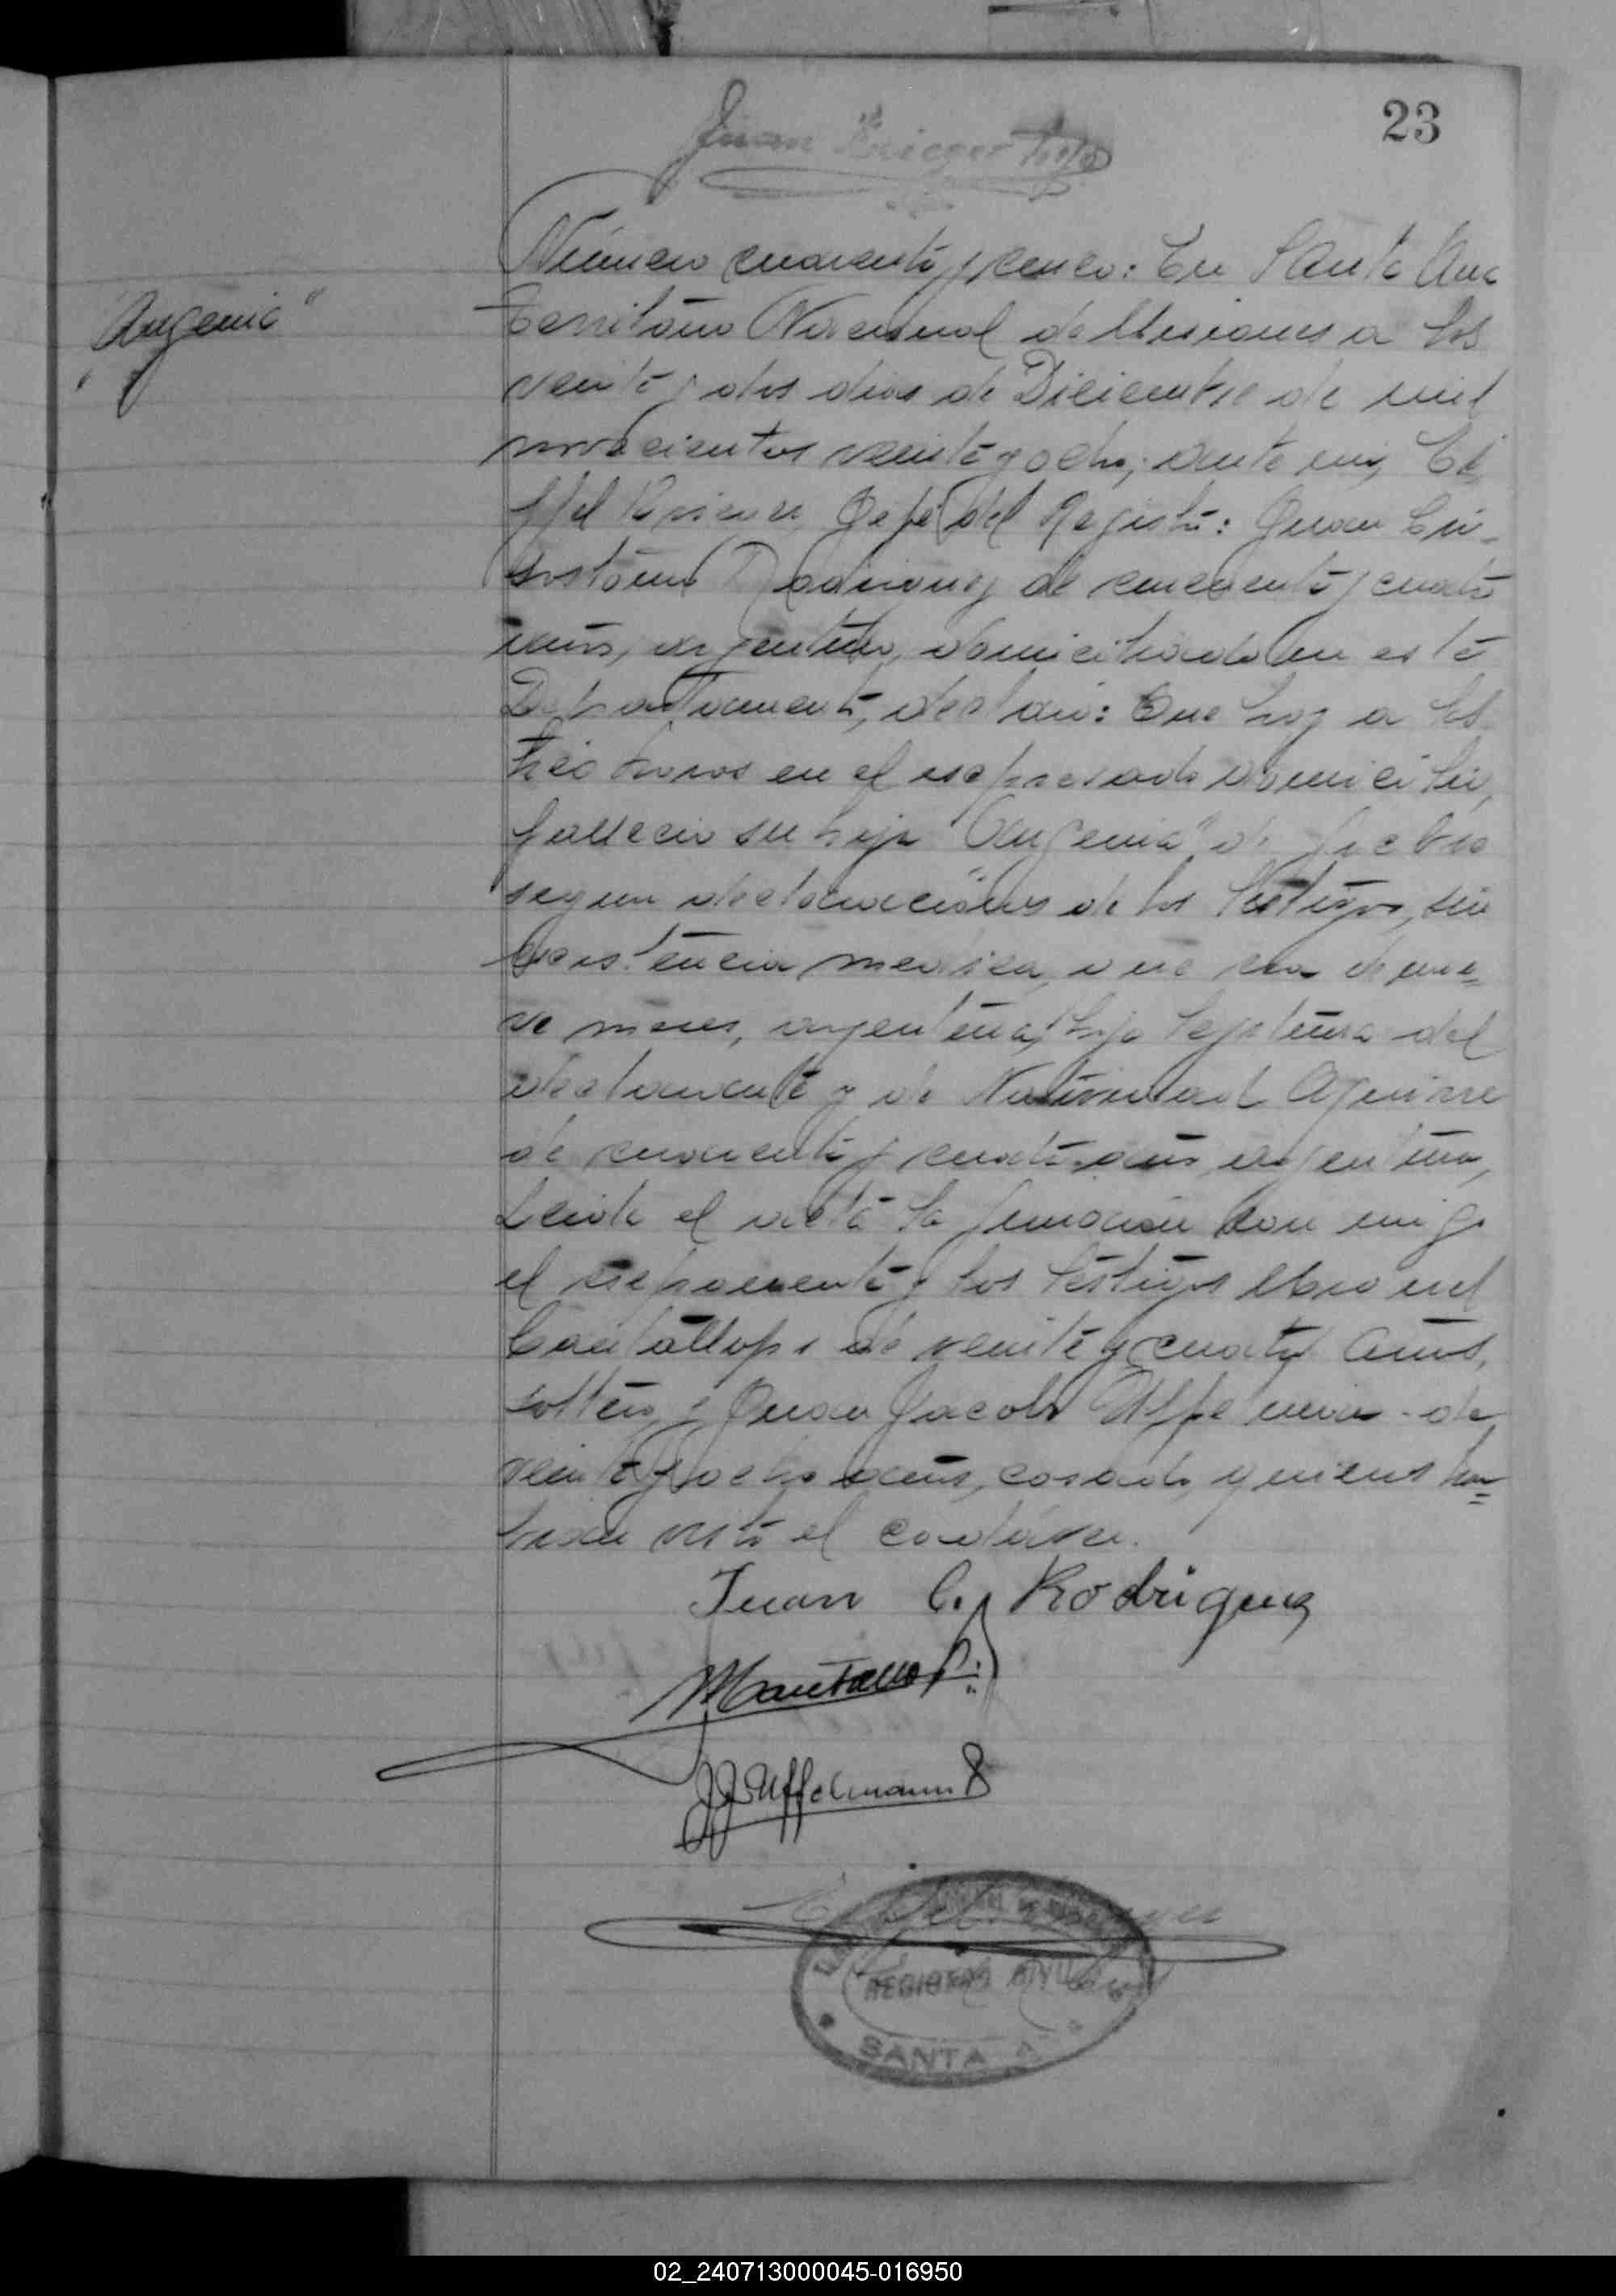 23
Juan Krieger hijo
"Angenia"
Número cuarenta y cinco: En Santa Ana
Territorio Nacional de Misiones a los
veinte y dos dias de Diciembre de mil
novecientos veinte y ocho; ante mi,
Jefe del Registro: Juan Cri-
sostomo Rodriguez de cincuenta y cuatro
años, argentino, domiciliado en este
Departamento, declaró: Que hoy a las
tres horas en el expresado domicilio,
fallecio su hija "Angenia" de fiebre
segun declaraciones de los testigos, sin
asistencia medica, que era de nue=
ve meses, argentina, hija legitima del
declarante y de Natividad Aguirre
de cuarenta y cuatro años argentina,
Leida el acta la firmaron con migo
el exponente y los testigos Manuel
Cantallops de veinte y cuatro años,
soltero y Juan Jacobo Uffelmann de
veinte y ocho años, casado, quienes han=
visto el cadaver.
Juan C. Rodriguez
MCantallops
J J Uffelmann
REGISTRO CIVIL
SANTA A
02_240713000045-016950